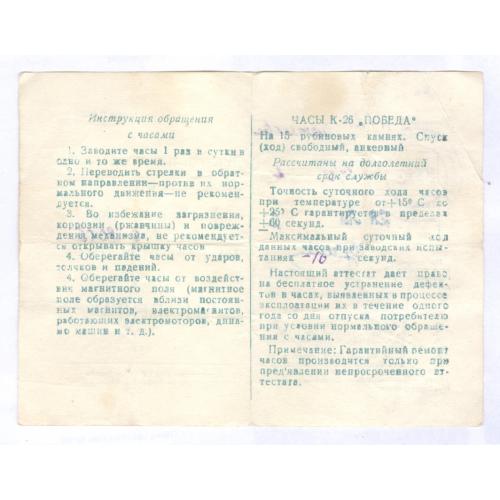 Инструкция обращения
с часами
1. Заводите часы 1 раз в сутки в
одно и то же время.
2. Переводить стрелки в обрат
ном направлении—против их нор
мального движения—не рекомен
дуется.
3. Во избежание загрязнения,
коррозии (ржавчины) и повреж
дения механизма, не рекомендует
ся открывать крышку часов
4. Оберегайте часы от ударов,
толчков и падений.
4. Оберегайте часы от воздейст
вия магнитного поля (магнитное
поле образуется вблизи постоян
ных магнитов, електромагантов,
работающих електромоторов, дина
мо машин и т. д.).
ЧАСЫ К-26 „ПОБЕДА“
На 15 рубиновых камнях. Спуск
(ход) свободный, анкерный
Рассчитаны на долголетний
срок службы
Точность суточного хода часов
при температуре от+15° С до
+25° С гарантируется в пределах
±60 секунд.
Максимальный суточный ход
данных часов при заводских испы-
таниях -16 секунд.
Настоящий аттестат дает право
на бесплатное устранение дефек-
тов в часах, выявленных в процессе
эксплоатации их в течение одного
года со дня отпуска потребителю
при условии нормального обраще-
ния с часами.
Примечание: Гарантийный ремонт
часов производится только при
пред'явлении непросроченного ат-
тестата.